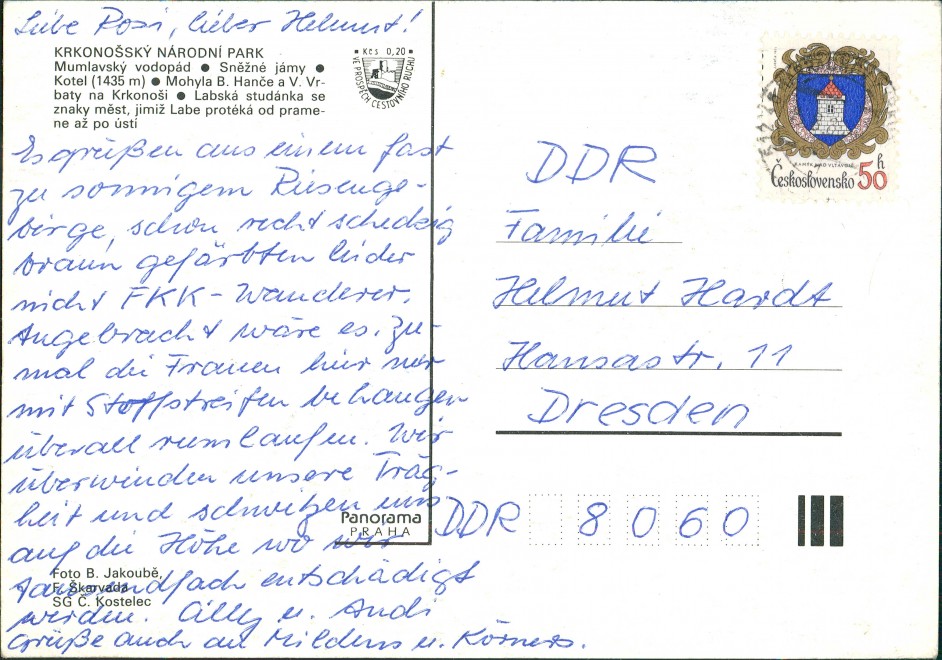 Liebe Rosi, lieber Helmut!
KRKONOŠSKÝ NÁRODNÍ PARK
Mumlavský vodopád ● Sněžné jámy ●
Kotel (1435 m) ● Mohyla B. Hanče a V. Vr-
baty na Krkonoši ● Labská studánka se
znaky měst, jimiž Labe protéká od prame-
ne až po ústí
Kčs 0,20
VE PROSPĚCH CESTOVNÍHO RUCHU
Es grüßen aus einem fast
zu sonnigem Riesenge-
birge, schon recht scheckig
braun gefärbten leider
nicht FKK-Wanderer.
Angebracht wäre es. Zu-
mal die Frauen hier nur
mit Stoffstreifen behangen
überall rumlaufen. Wir
überwinden unsere Träg-
heit und schwitzen uns
auf die Höhe wo wir
tausendfach entschädigt
werden. Cilly u. Andi
Grüße auch an Mildens u. Körners.
Panorama
PRAHA
Foto B. Jakoubě,
F. Škarvada
SG C. Kostelec
Československo 50 h
DDR
Familie
Helmut Hardt
Hansastr. 11
Dresden
DDR 8060